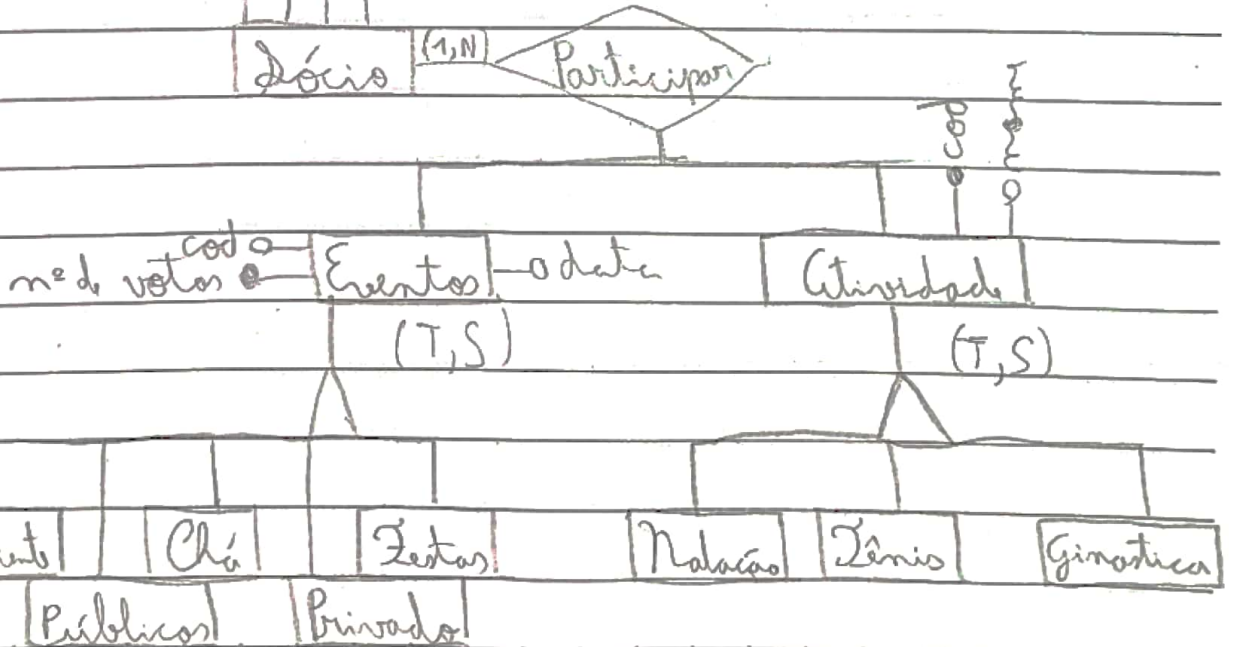 Sócio (1,N) Participar
cod
cod
nº de votos Eventos data Atividade
(T,S) (T,S)
Chá Festas Natação Tênis Ginastica
Públicos Privado